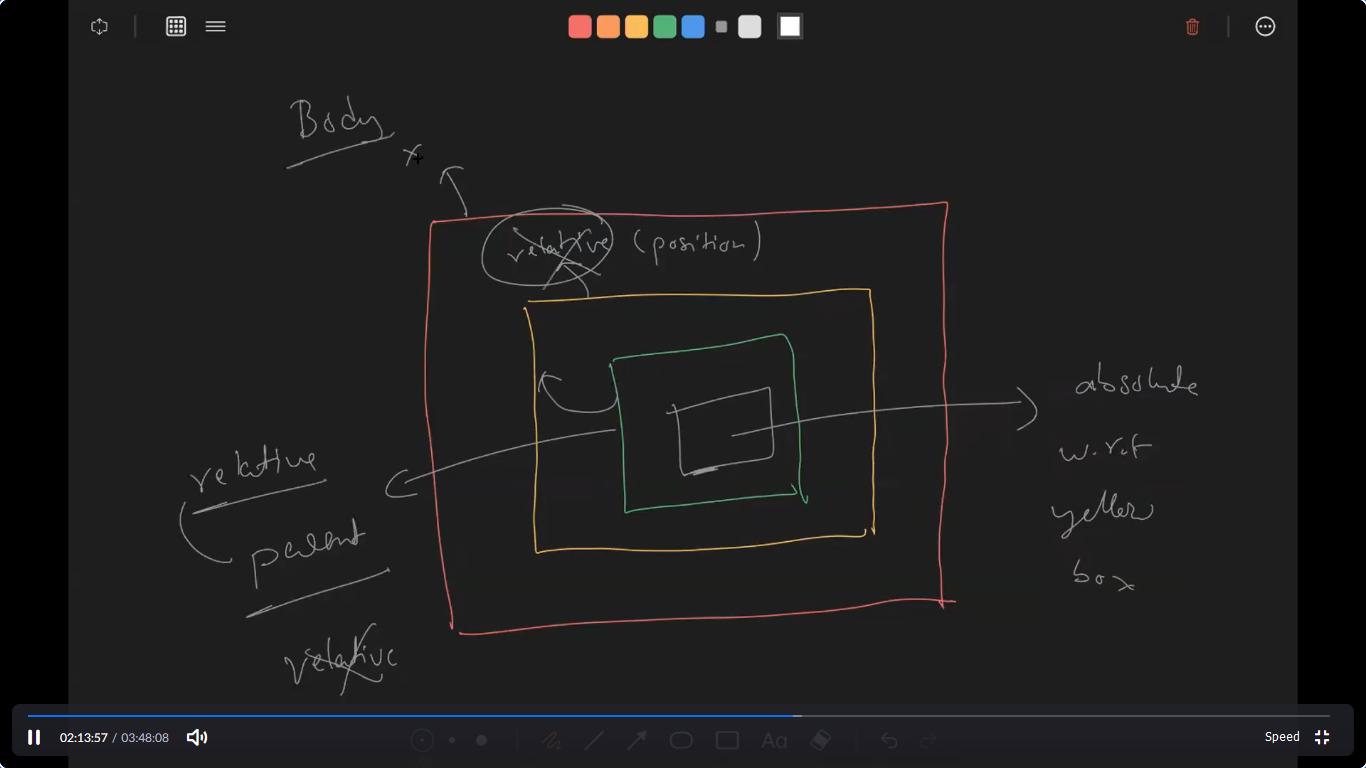 Aa
Body
x
relative (position)
absolute
w.r.t
yellow
box
relative
parent
relative
02:13:57 / 03:48:08
Speed